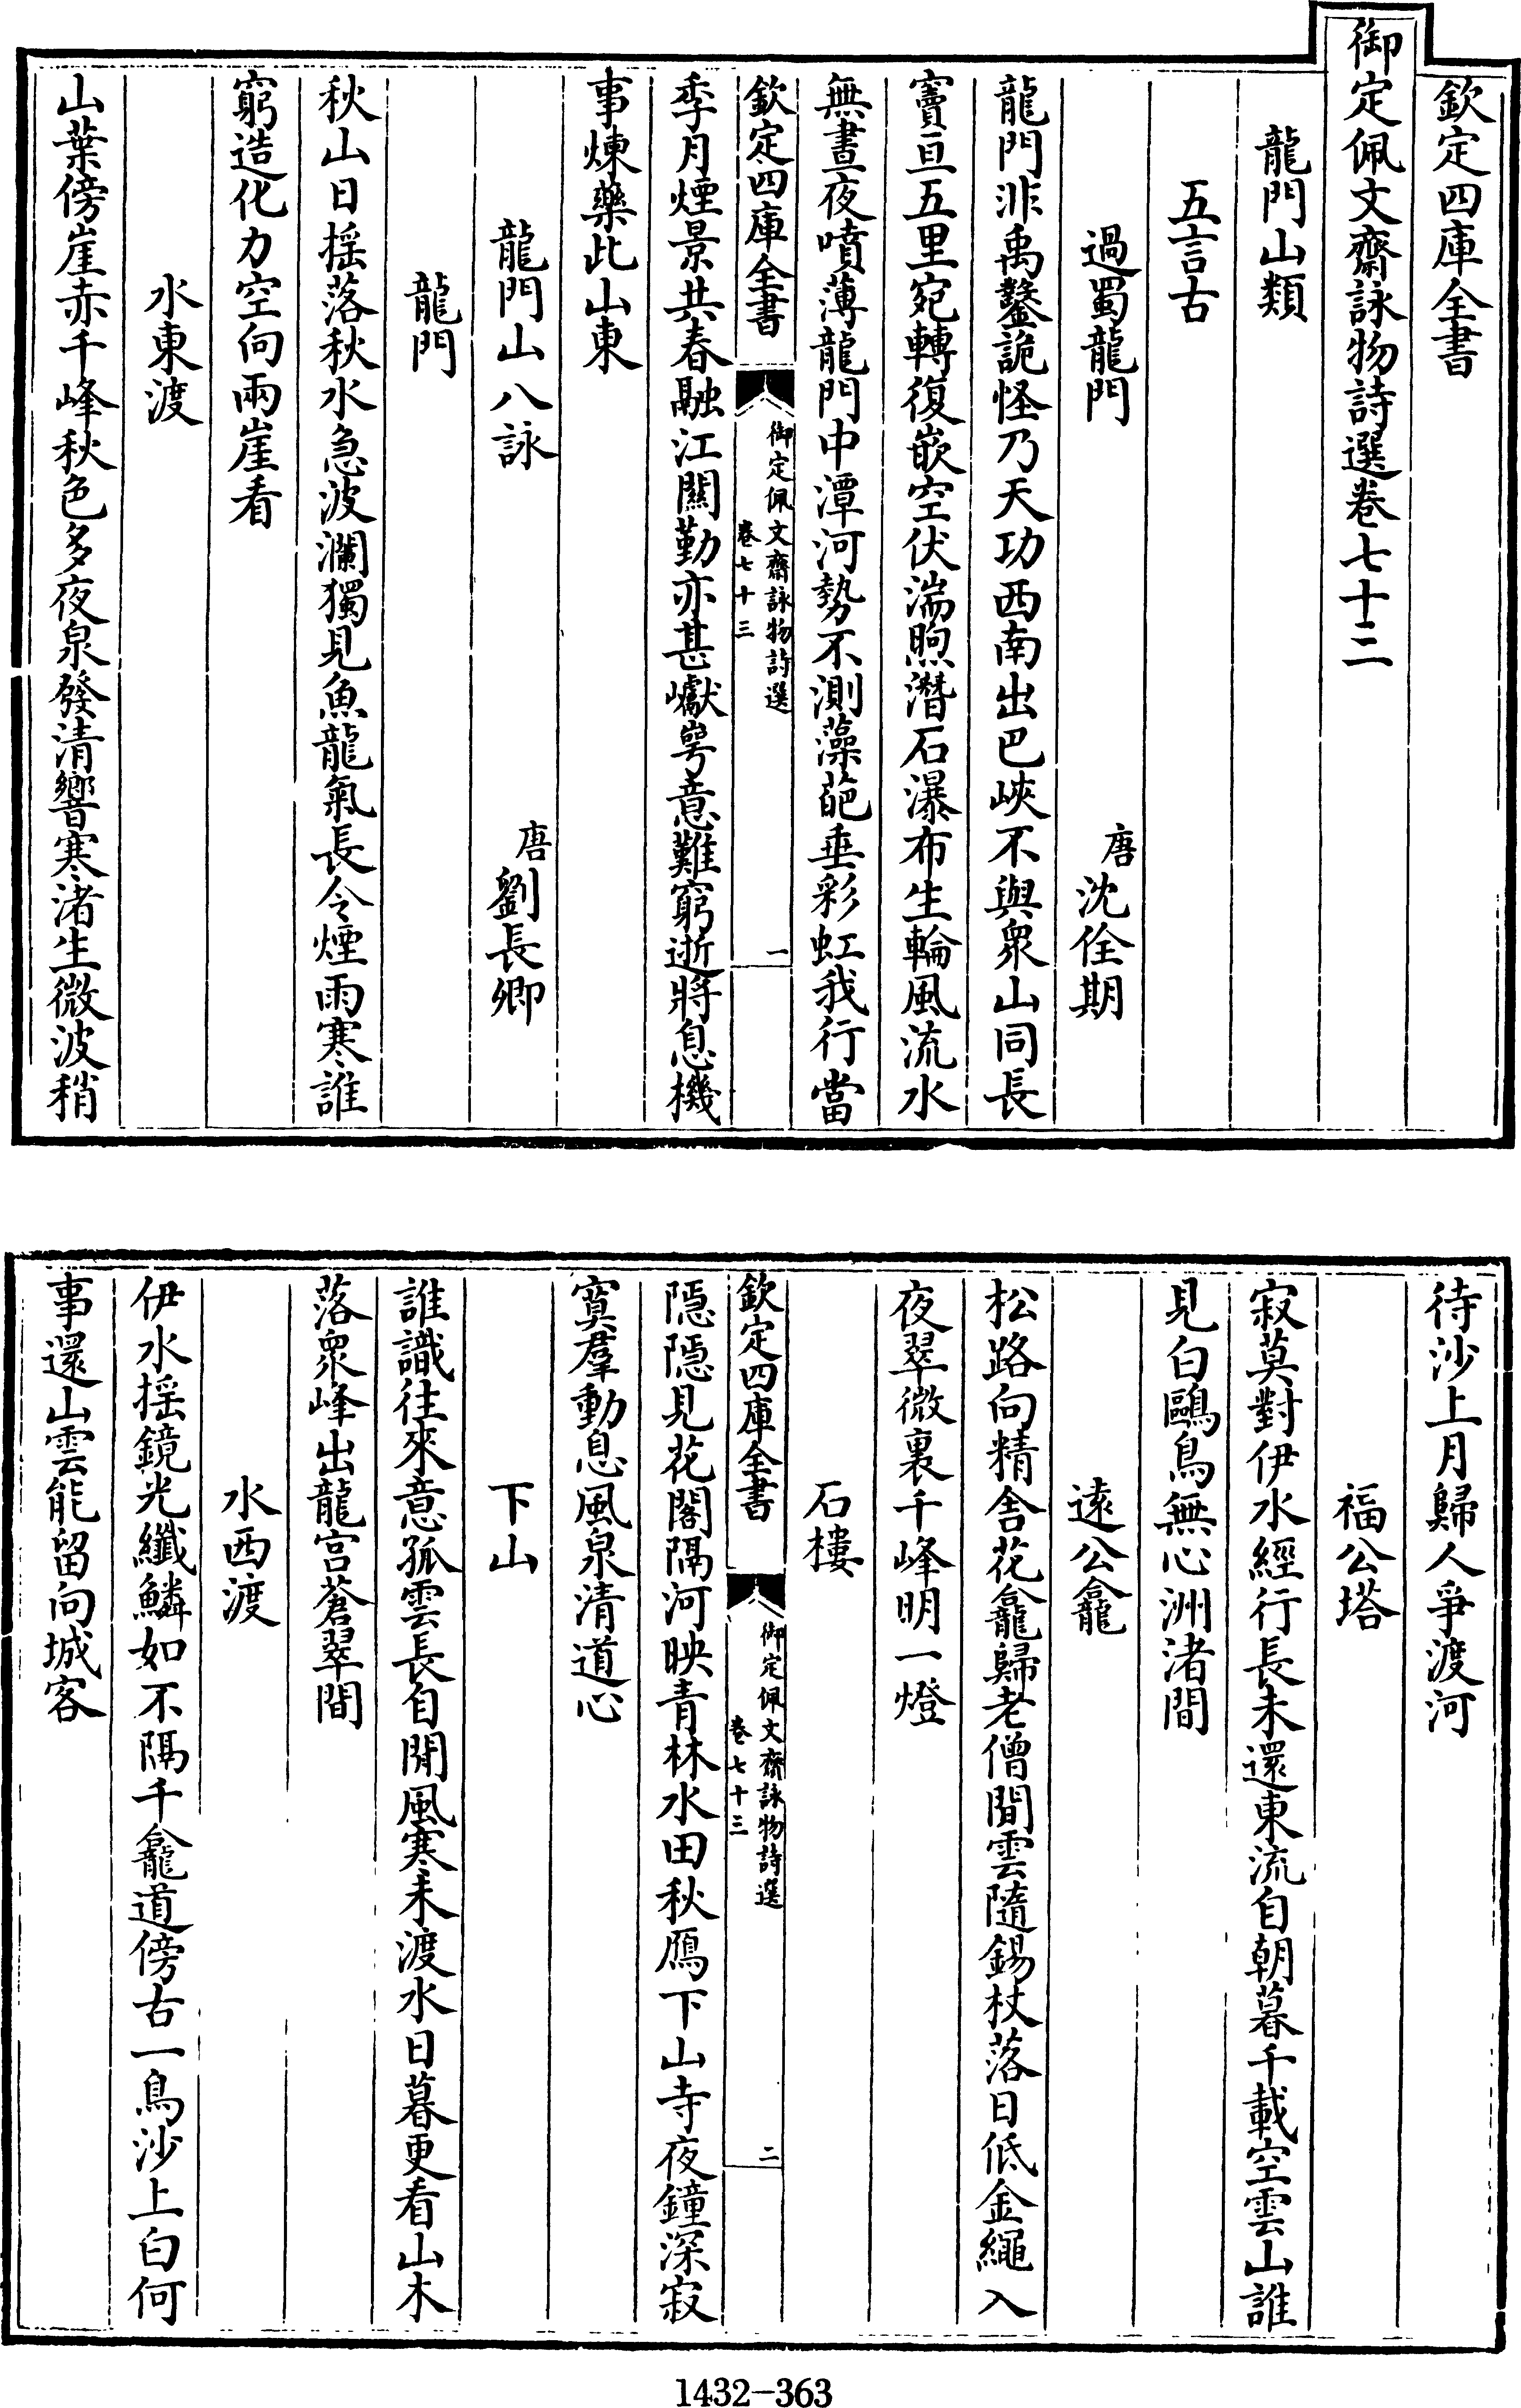 欽定四庫全書
御定佩文齋詠物詩選卷七十三
龍門山類
五言古
過蜀龍門
唐沈佺期
龍門非禹鑿詭怪乃天功西南出巴峽不與衆山同長
竇亘五里宛轉復嵌空伏湍煦潛石瀑布生輪風流水
無晝夜噴薄龍門中潭河勢不測藻葩垂彩虹我行當
欽定四庫全書
御定佩文齋詠物詩選
卷七十三
一
季月煙景共春融江關勤亦甚巘崿意難窮逝將息機
事煉藥此山東
龍門山八詠
唐劉長卿
龍門
秋山日揺落秋水急波瀾獨見魚龍氣長令煙雨寒誰
窮造化力空向兩崖看
水東渡
山葉傍崖赤千峰秋色多夜泉發清響寒渚生微波稍
待沙上月歸人爭渡河
福公塔
寂莫對伊水經行長未還東流自朝暮千載空雲山誰
見白鷗鳥無心洲渚間
遠公龕
松路向精舎花龕歸老僧閒雲隨錫杖落日低金繩入
夜翠微裏千峰明一燈
石樓
欽定四庫全書
御定佩文齋詠物詩選
卷七十三
二
隱隱見花閣隔河映青林水田秋鴈下山寺夜鐘深寂
寞羣動息風泉清道心
下山
誰識往來意孤雲長自閒風寒未渡水日暮更看山木
落衆峰出龍宮蒼翠間
水西渡
伊水揺鏡光纖鱗如不隔千龕道傍古一鳥沙上白何
事還山雲能留向城客
1432-363